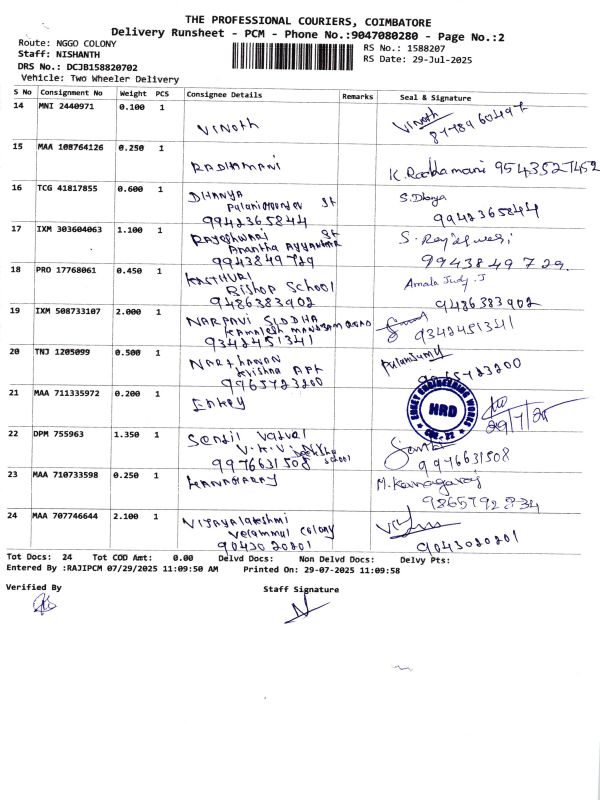 THE PROFESSIONAL COURIERS, COIMBATORE
Delivery Runsheet - PCM - Phone No.:9047080280 - Page No.:2
Route: NGGO COLONY
Staff: NISHANTH
DRS No.: DCJB158820702
Vehicle: Two Wheeler Delivery
RS No.: 1588207
RS Date: 29-Jul-2025
S No Consignment No Weight PCS Consignee Details Remarks Seal & Signature
14 MNI 2440971 0.100 1 Vinoth Vinoth
15 MAA 108764126 0.250 1 RADHAMANI K. Radhamani 9543527452
16 TCG 41817855 0.600 1 DHANYA S. Dhanya
St
9942365844 9942365844
17 IXM 303604063 1.100 1 RAJESHWARI St S. Rajeswari
Anantha Ayyankar
9943849729 9943849729.
18 PRO 17768061 0.450 1 KASTHURI Amala Judy .J
Bishop School
9486383902 9486383902
19 IXM 508733107 2.000 1 NARPAVI SIDDHA
9342451341 9342451341
20 TNJ 1205099 0.500 1 Narthanan
Krishna Apt
9965723200 9965723200
21 MAA 711335972 0.200 1 Enkey
ENKEY ENGINEERING WORKS
HRD
29/7/25
22 DPM 755963 1.350 1 Sentil
School
9976631508 9976631508
23 MAA 710733598 0.250 1 KANAGARAJ M. Kanagaraj
9865792834
24 MAA 707746644 2.100 1 VIJAYALAKSHMI
Velammal Colony
9043020201 9043020201
Tot Docs: 24 Tot COD Amt: 0.00 Delvd Docs: Non Delvd Docs: Delvy Pts:
Entered By :RAJIPCM 07/29/2025 11:09:50 AM Printed On: 29-07-2025 11:09:58
Verified By Staff Signature